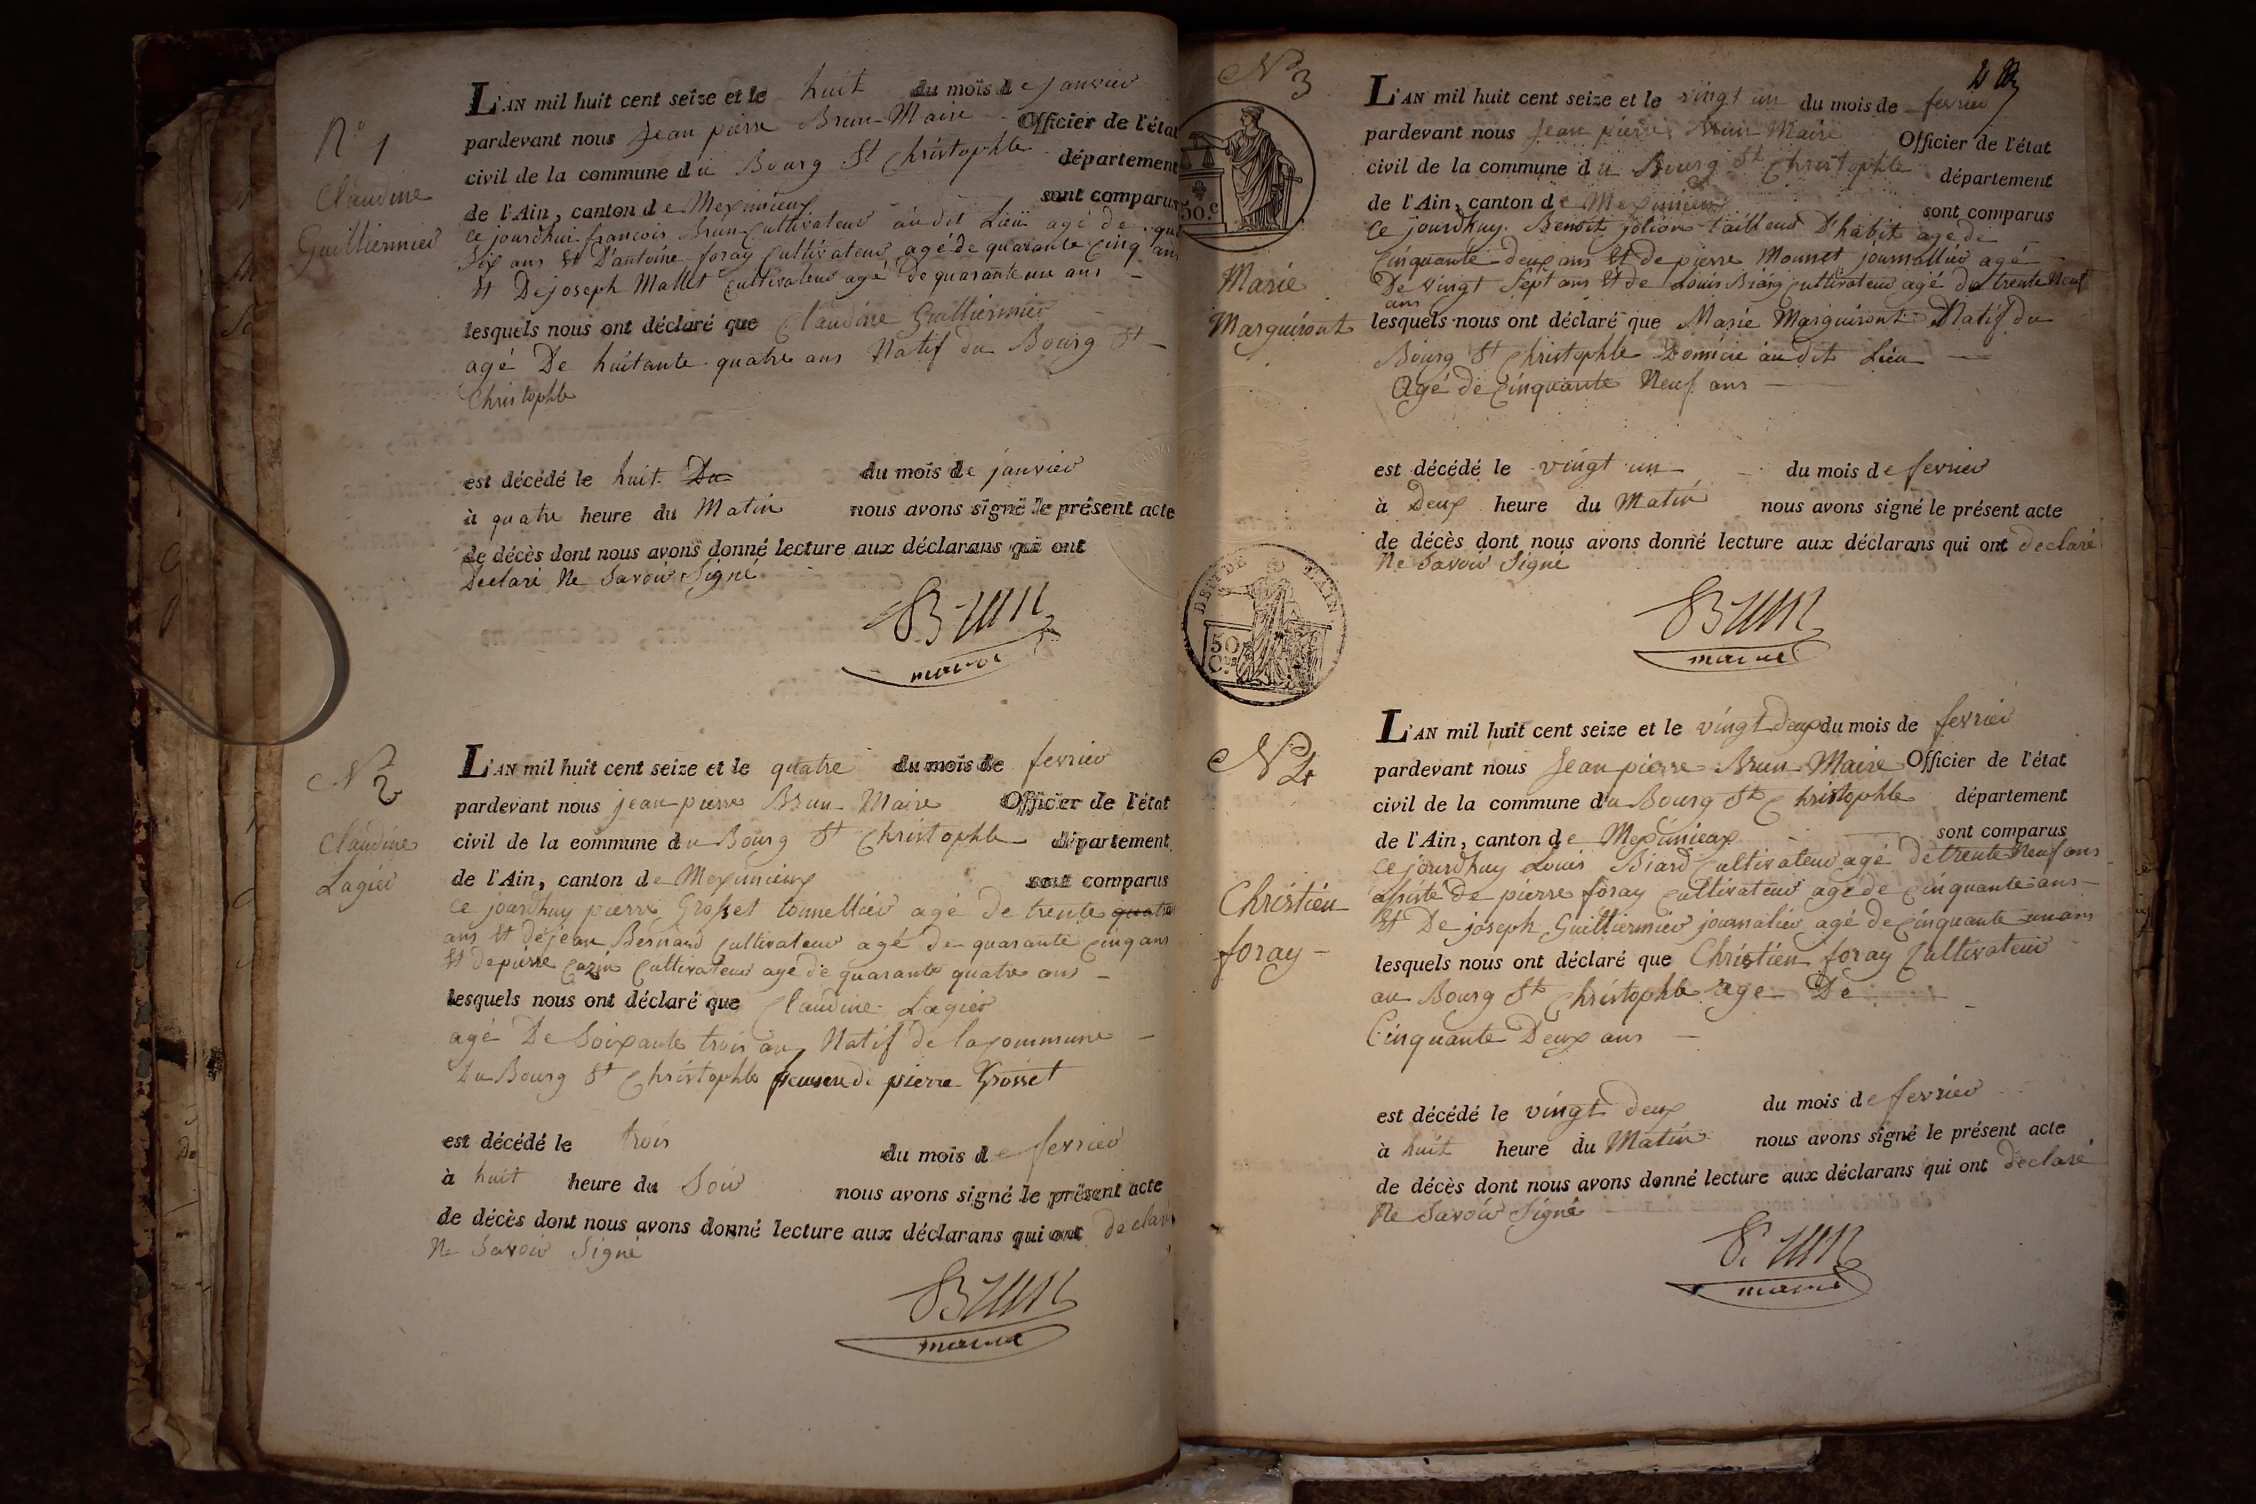 N° 1
Claudine
Guilliermier
L'AN mil huit cent seize et le huit du mois de janvier
pardevant nous Jean pierre Brun Maire Officier de l'état
civil de la commune du Bourg St Christophle département
de l'Ain, canton de Meximieux sont comparus
ce jourdhui francois Brun Cultivateur audit Lieu agé de
Six ans Et D'antoine foray Cultivateur agé de quarante Cinq ans
Et De joseph Mallet Cultivateur agé de quarante un ans
lesquels nous ont déclaré que Claudine Guilliermier
agé De huitante quatre ans Natif du Bourg St
Christophle
est décédé le huit Du du mois de janvier
à quatre heure du Matin nous avons signé le présent acte
de décès dont nous avons donné lecture aux déclarans qui ont
Declaré Ne Savoir Signé
Brun
maire
No 2
Claudine
Lagier
L'AN mil huit cent seize et le quatre du mois de fevrier
pardevant nous jean pierre Brun Maire Officier de l'état
civil de la commune du Bourg St Christophle département
de l'Ain, canton de Meximieux sont comparus
ce jourdhuy pierre Grosset tonnellier agé De trente quatre
ans Et de jean Bernard Cultivateur agé De quarante Cinq ans
Et de pierre Cazin Cultivateur agé de quarante quatre ans
lesquels nous ont déclaré que Claudine Lagier
agé De Soixante trois ans Natif de la Commune
Du Bourg St Christophle femme de pierre Grosset
est décédé le trois du mois de fevrier
à huit heure du Soir nous avons signé le présent acte
de décès dont nous avons donné lecture aux déclarans qui ont declaré
Ne Savoir Signé
Brun
maire
No 3
50.c
Marie
Marguiront
L'AN mil huit cent seize et le vingt un du mois de fevrier
pardevant nous Jean pierre Brun Maire Officier de l'état
civil de la commune du Bourg St Christophle département
de l'Ain, canton de Meximieux sont comparus
Ce jourdhuy Benoit jolion tailleur D'habit agé de
Cinquante deux ans Et de pierre Monnet journallier agé
De vingt Sept ans Et de Louis Biard Cultivateur agé de trente Neuf
ans
lesquels nous ont déclaré que Marie Marguiront Natif du
Bourg St Christophle Domicié audit Lieu
Agé de Cinquante Neuf ans
est décédé le vingt un du mois de fevrier
à Deux heure du Matin nous avons signé le présent acte
de décès dont nous avons donné lecture aux déclarans qui ont declaré
Ne Savoir Signé
Brun
maire
DEPT DE L'AIN
50
Ces
No 4
Christien
foray
L'AN mil huit cent seize et le vingt deux du mois de fevrier
pardevant nous Jean pierre Brun Maire Officier de l'état
civil de la commune du Bourg St Christophle département
de l'Ain, canton de Meximieux sont comparus
Ce jourdhuy Louis Biard Cultivateur agé De trente Neuf ans
assisté De pierre foray Cultivateur agé de Cinquante ans
Et De joseph Guilliermier journalier agé de Cinquante un ans
lesquels nous ont déclaré que Christien foray Cultivateur
au Bourg St Christophle age De
Cinquante Deux ans
est décédé le vingt deux du mois de fevrier
à huit heure du Matin nous avons signé le présent acte
de décès dont nous avons donné lecture aux déclarans qui ont declaré
Ne Savoir Signé
Brun
maire